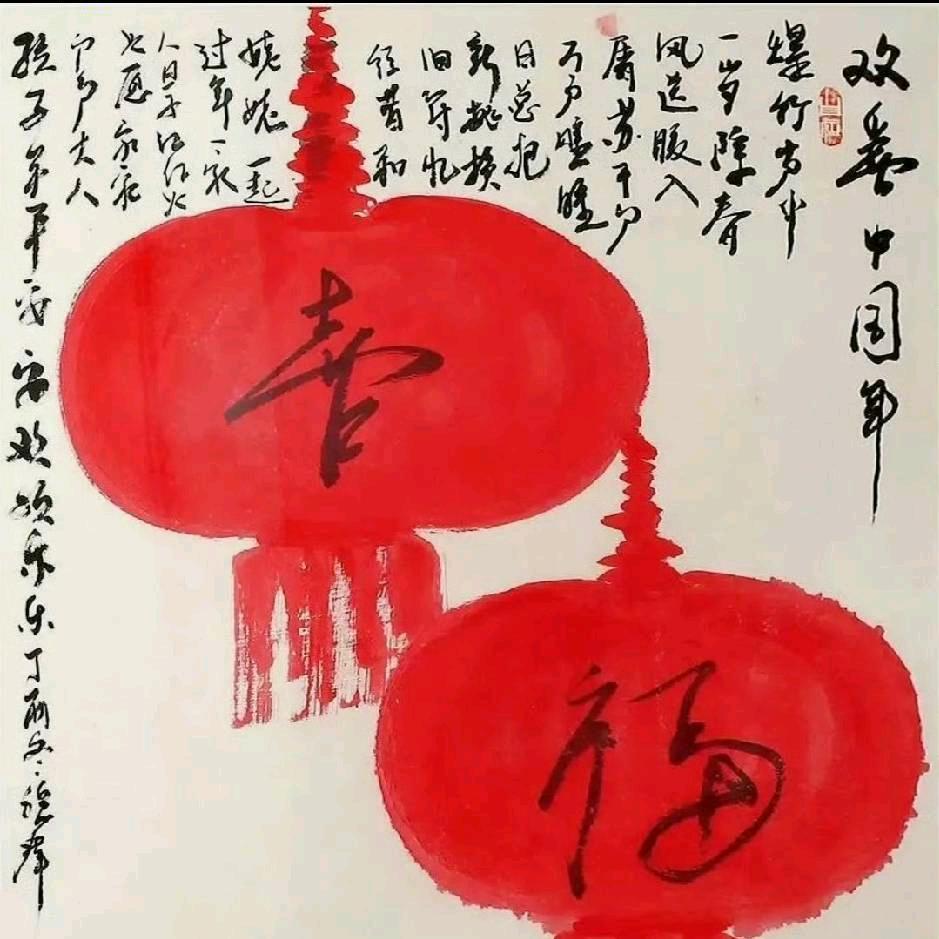 欢喜中国年
爆竹声中
一岁除春
风送暖入
屠苏千门
万户曈曈
日总把
新桃换
旧符忆
往昔和
姥姥一起
过年一家
人日子红红火
火愿家家
户户大人
孩子平安欢乐乐丁酉冬
喜
福